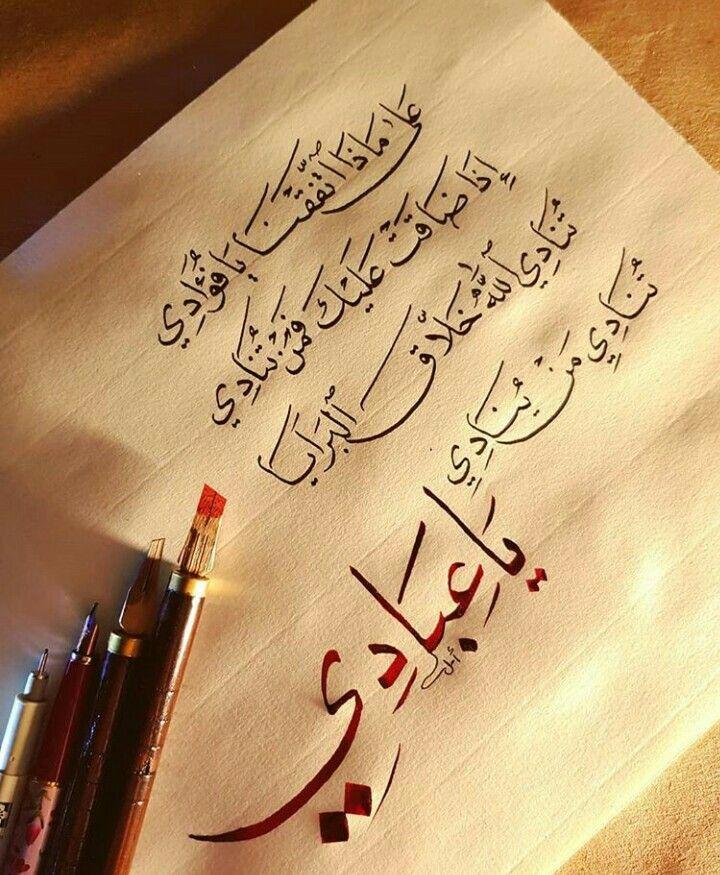 عَلَى مَاذَا اتَّفَقْنَا يَا فُؤَادِي
إِذَا ضَاقَتْ عَلَيْكَ فَمَنْ تُنَادِي
تُنَادِي ٱللّٰهَ خَلَّاقَ ٱلْبَرَايَا
تُنَادِي مَنْ يُنَادِي
يَا عِبَادِي